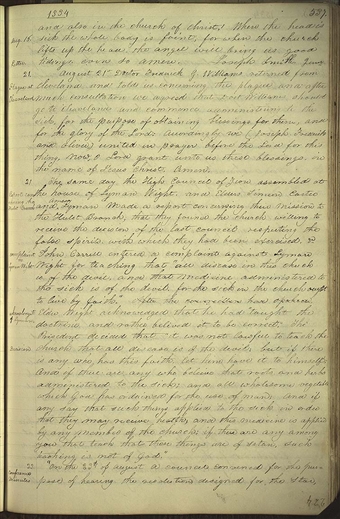 1834
537
and also in the church of Christ; When the head is
Aug. 16.
sick the whole body is faint, for when the church
lifts up the head the angel will bring us good
tidings even so amen. Joseph Smith Jun.
21
August 21st Doctor Frederick G. Williams returned from
Cleveland and told us concerning the plague and after
much consultation we agreed that Doct. Williams should
go to Cleveland and commence administering to the
sick, for the purpose of obtaining blessings for them, and
for the glory of the Lord: Accordingly we (Joseph Frederick
and Oliver) united in prayer before the Lord for this
thing. Now, O Lord grant unto us these blessings, in
the name of Jesus Christ. Amen.
21
The same day, the High Council of Zion assembled at
the house of Lyman Wight; and Elders
and Lyman made a report concerning their Mission to
the Branch, that they found the Church willing to
receive the decision of the last council respecting the
false spirits with which they had been exercised. &
John Corrill entered a complaint against Lyman
Wight for teaching that "all disease in this church
is of the devil, and that medicine administered to
the sick is of the devil; for the sick in the church ought
to live by faith." After the councillors had spoken,
Elder Wight acknowledged that he had taught the
doctrine and rather believed it to be correct. The
decision
President decided that it was not lawful to teach the
church that all disease is of the devil, but if there
is any one, has this faith, let him have it to himself.
And if there are any who believe that roots and herbs
administered to the sick, and all wholesome vegetables
which God has ordained for the use of man; and if
any say that such things applied to the sick, in order
that they may receive health, and this medicine is applied
by any member of the church, if there are any among
you that teach that these things are of satan, such
teaching is not of God."
23
"On the 23d of August a council convened for the pur-
pose of hearing the resolutions designed for the